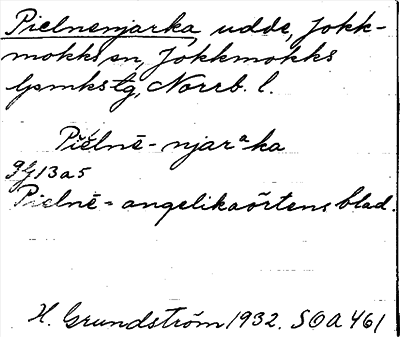 Pielnenjarka, udde, Jokk-
mokks sn, Jokkmokks
lpmkstg, Norrb. l.
Piēlnē-njarᵃka
9j13a5
Pielnē = angelikaörtens blad.
H. Grundström 1932. SOA 461